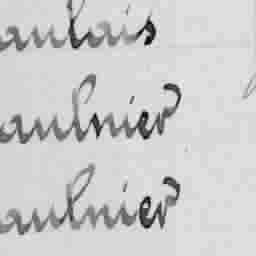 aulais
aulnier
aulnier